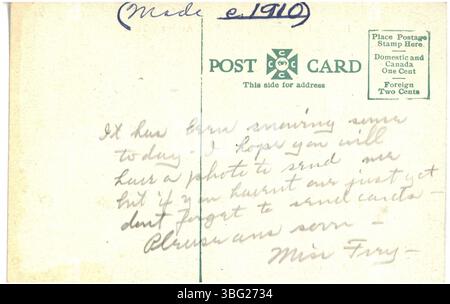 (Made c.1910)
POST CARD
This side for address
Place Postage
Stamp Here
Domestic and
Canada
One Cent
Foreign
Two Cents
It has been snowing some
today. I hope you will
have a photo to send me
but if you havent one just yet
dont forget to send cards-
Please ans soon-
Miss
alamy
Image ID: 3BG2734
www.alamy.com